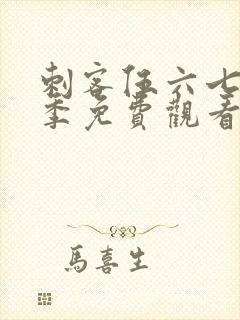 刺客伍六七
季免費觀看
馬喜生